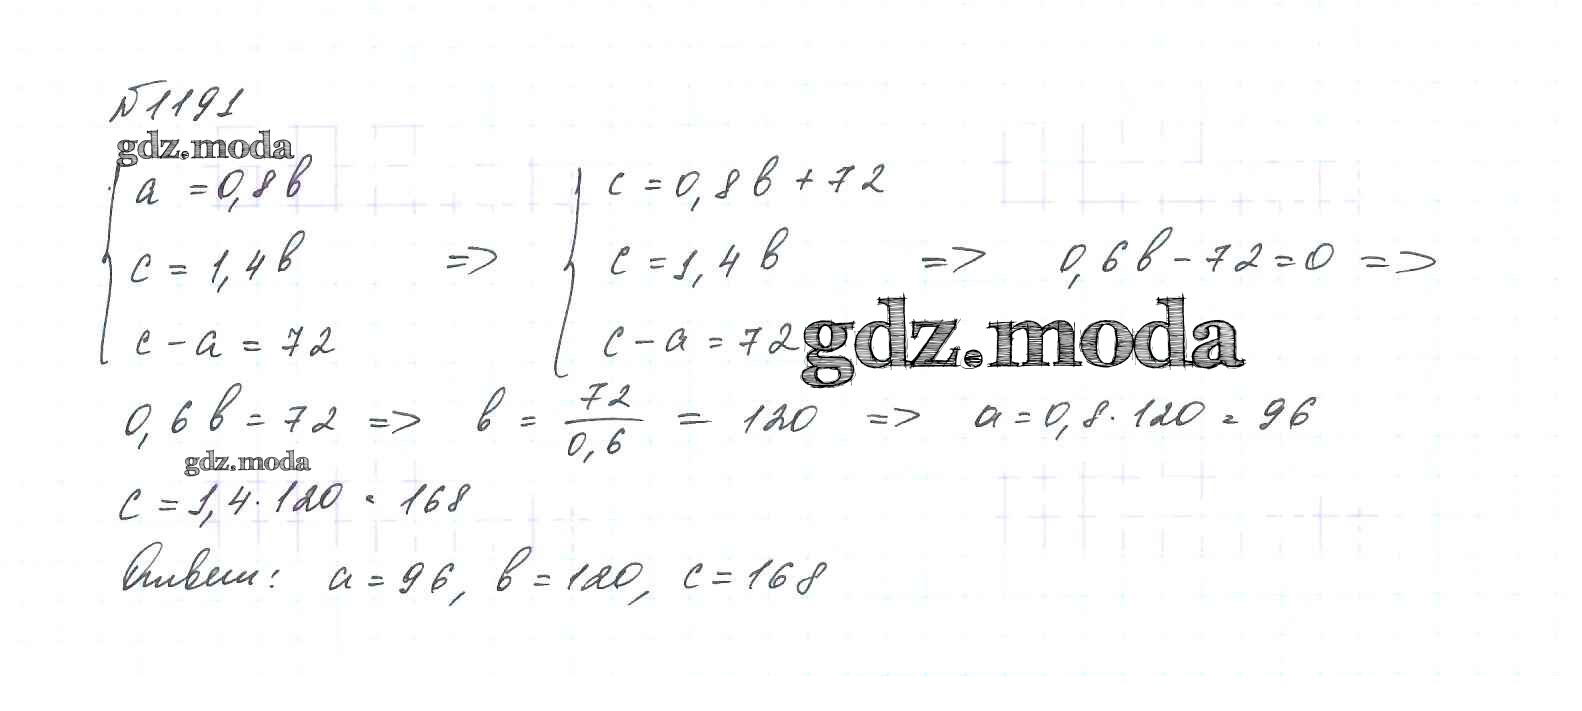 №1191
gdz.moda
{ a = 0,8b
c = 1,4b
c - a = 72
=>
{ c = 0,8b + 72
c = 1,4b
c - a = 72
=> 0,6b - 72 = 0 =>
gdz.moda
0,6b = 72 => b = 72/0,6 = 120 => a = 0,8 · 120 = 96
gdz.moda
c = 1,4 · 120 = 168
Ответ: a = 96, b = 120, c = 168